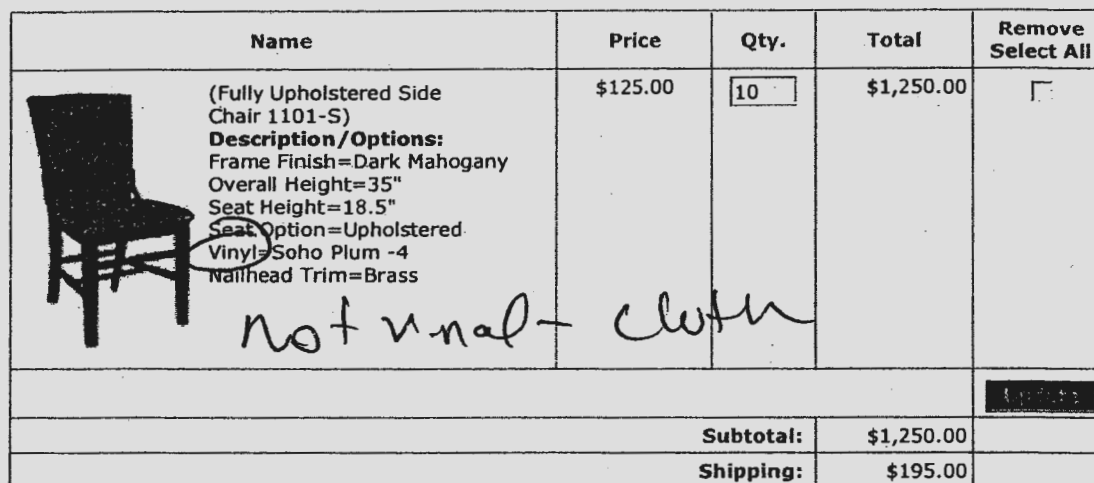 Name Price Qty. Total Remove
Select All
(Fully Upholstered Side $125.00 10 $1,250.00
Chair 1101-S)
Description/Options:
Frame Finish=Dark Mahogany
Overall Height=35"
Seat Height=18.5"
Seat Option=Upholstered
Vinyl=Soho Plum -4
Nailhead Trim=Brass
Not vinal - cloth
Subtotal: $1,250.00
Shipping: $195.00